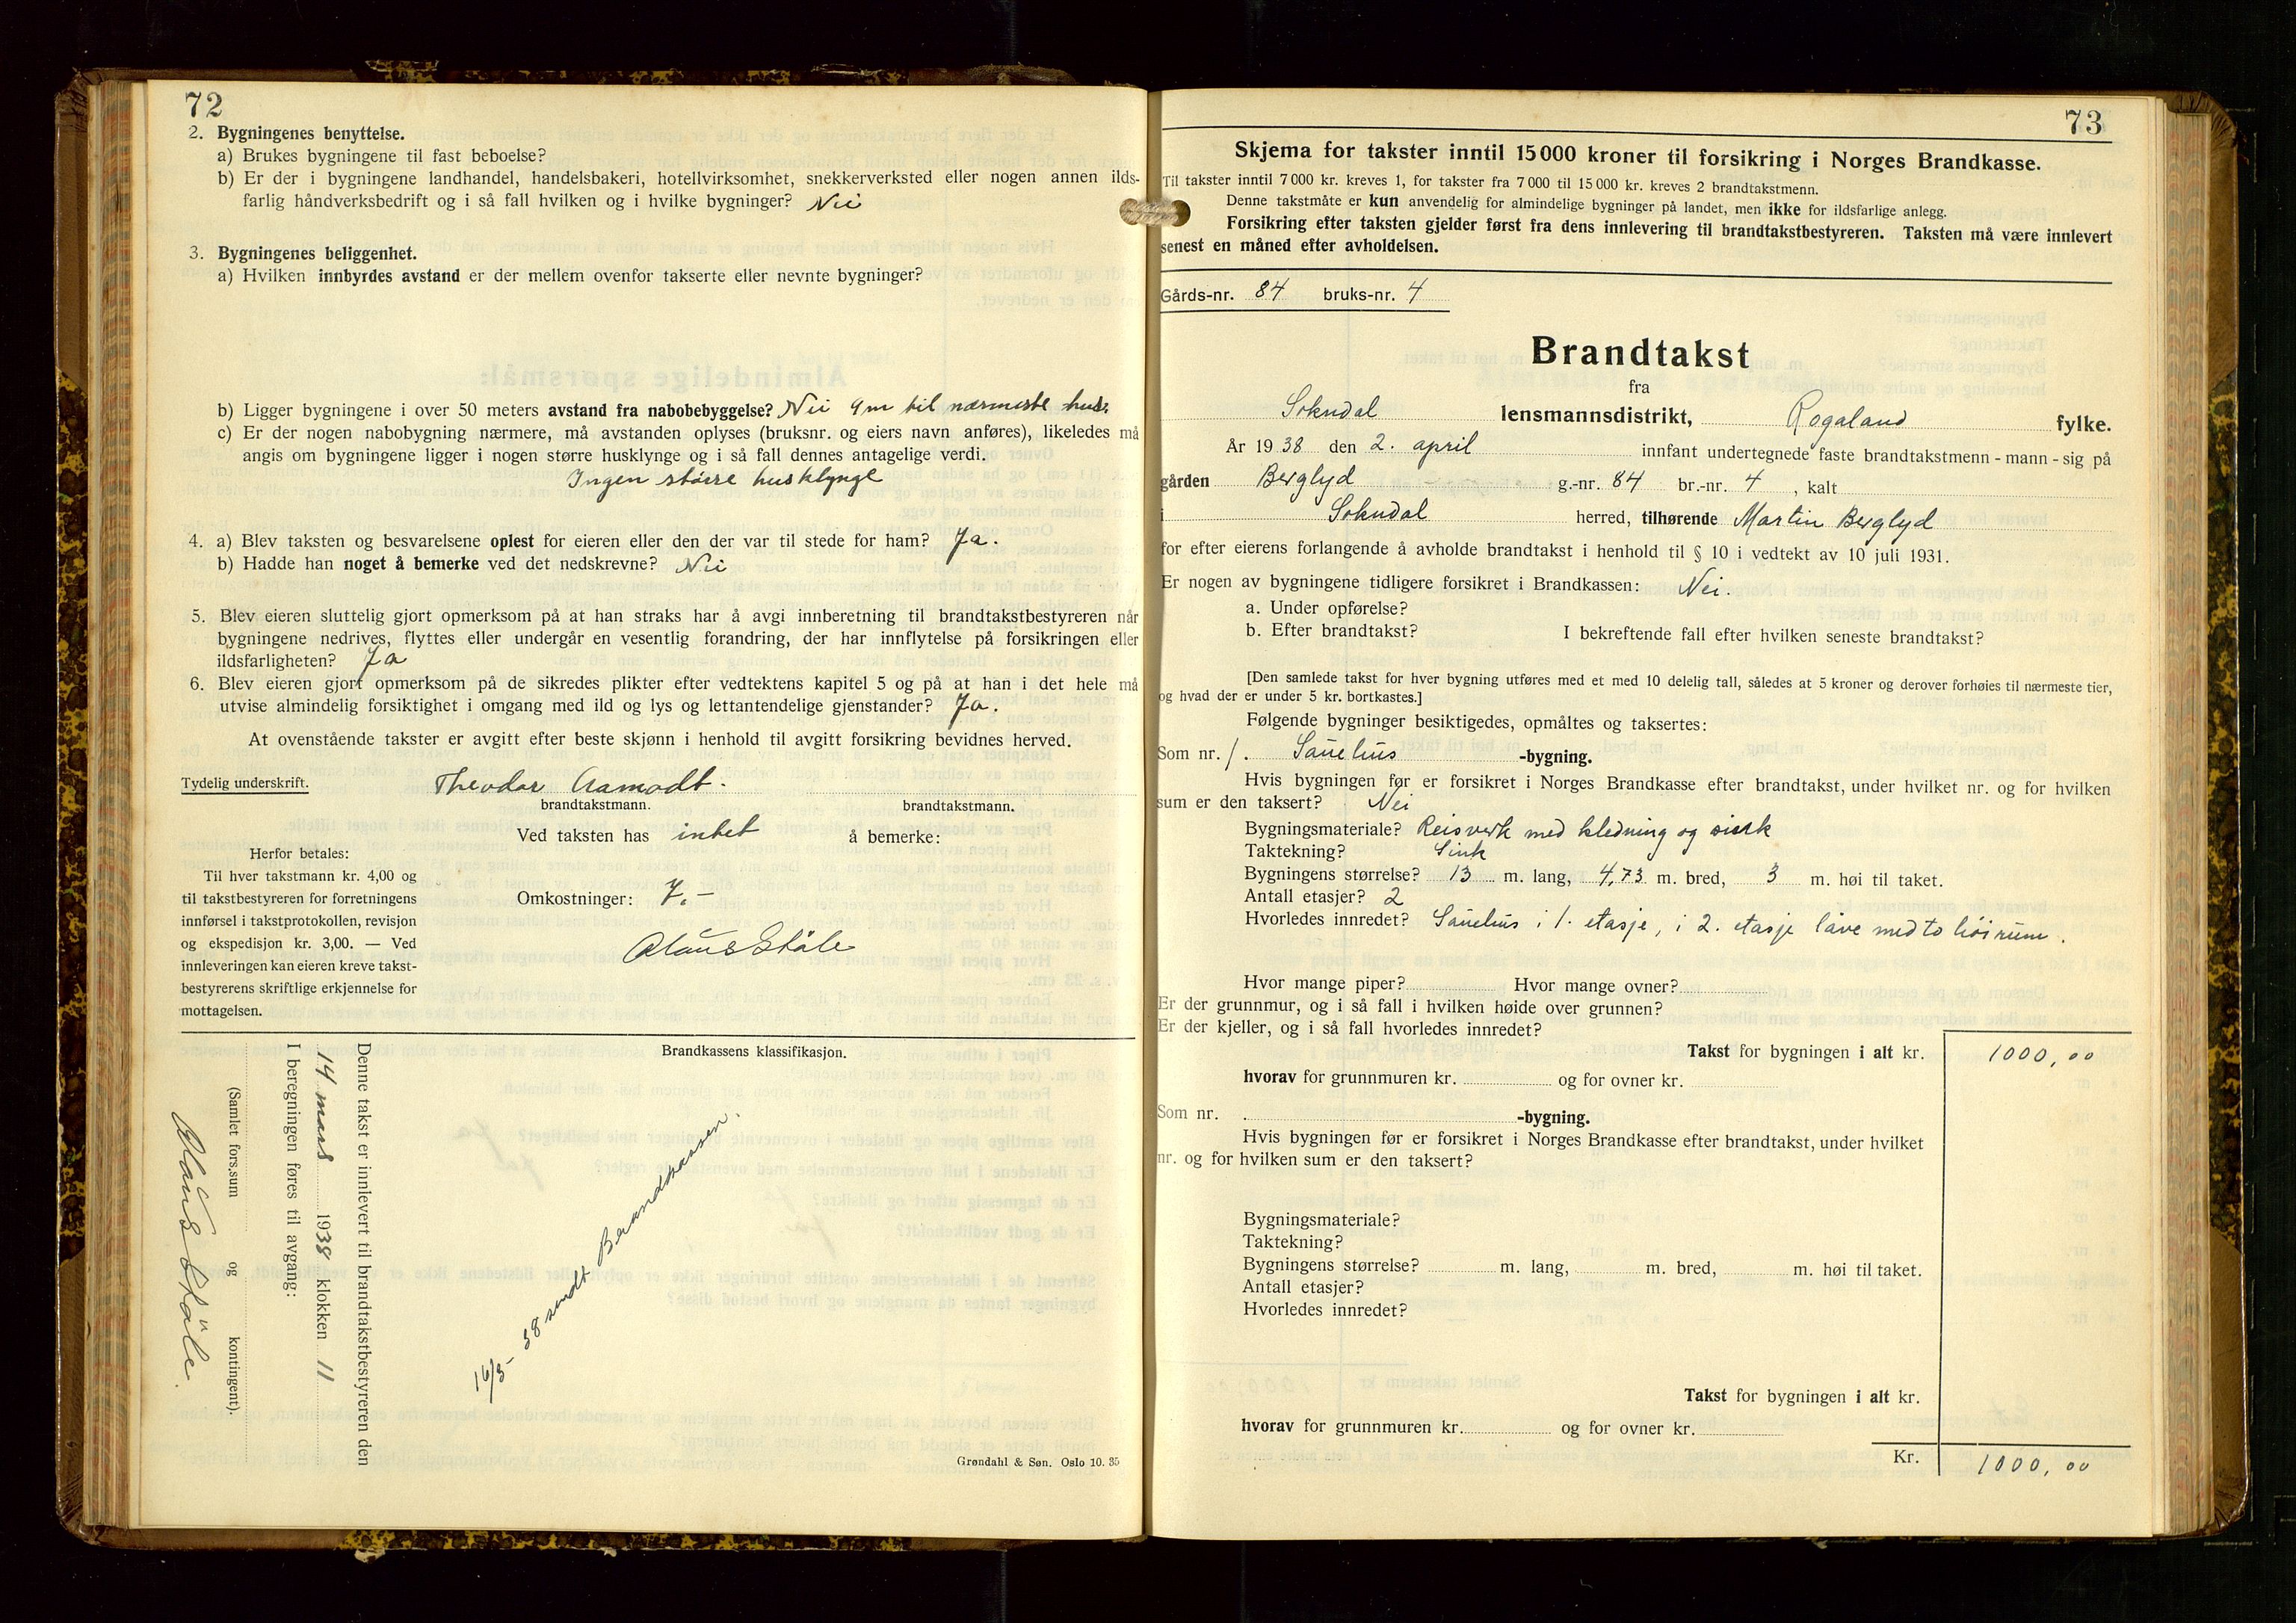 72
2. Bygningenes benyttelse.
a) Brukes bygningene til fast beboelse?
b) Er der i bygningene landhandel, handelsbakeri, hotellvirksomhet, snekkerverksted eller nogen annen ilds-
farlig håndverksbedrift og i så fall hvilken og i hvilke bygninger? Nei
3. Bygningenes beliggenhet.
a) Hvilken innbyrdes avstand er der mellem ovenfor takserte eller nevnte bygninger?
b) Ligger bygningene i over 50 meters avstand fra nabobebyggelse? Nei 9m til nærmeste hus.
c) Er der nogen nabobygning nærmere, må avstanden oplyses (bruksnr. og eiers navn anføres), likeledes må
angis om bygningene ligger i nogen større husklynge og i så fall dennes antagelige verdi.
Ingen større husklynge
4. a) Blev taksten og besvarelsene oplest for eieren eller den der var til stede for ham? Ja.
b) Hadde han noget å bemerke ved det nedskrevne? Nei
5. Blev eieren sluttelig gjort opmerksom på at han straks har å avgi innberetning til brandtakstbestyreren når
bygningene nedrives, flyttes eller undergår en vesentlig forandring, der har innflytelse på forsikringen eller
ildsfarligheten? Ja
6. Blev eieren gjort opmerksom på de sikredes plikter efter vedtektens kapitel 5 og på at han i det hele må
utvise almindelig forsiktighet i omgang med ild og lys og lettantendelige gjenstander? Ja.
At ovenstående takster er avgitt efter beste skjønn i henhold til avgitt forsikring bevidnes herved.
Tydelig underskrift. Theodor Aamodt.
brandtakstmann. brandtakstmann.
Ved taksten has intet å bemerke:
Herfor betales:
Til hver takstmann kr. 4,00 og
til takstbestyreren for forretningens
innførsel i takstprotokollen, revisjon
og ekspedisjon kr. 3,00. — Ved
innleveringen kan eieren kreve takst-
bestyrerens skriftlige erkjennelse for
mottagelsen.
Omkostninger: 7.-
Olaus Ståle
Brandkassens klassifikasjon.
Denne takst er innlevert til brandtakstbestyreren den
14 mars 1938 klokken 11
I beregningen føres til avgang:
(Samlet fors.sum og kontingent).
Olaus Ståle.
16/5- 38 sendt Brandkassen.
Grøndahl & Søn. Oslo 10. 35
73
Skjema for takster inntil 15 000 kroner til forsikring i Norges Brandkasse.
Til takster inntil 7 000 kr. kreves 1, for takster fra 7 000 til 15 000 kr. kreves 2 brandtakstmenn.
Denne takstmåte er kun anvendelig for almindelige bygninger på landet, men ikke for ildsfarlige anlegg.
Forsikring efter taksten gjelder først fra dens innlevering til brandtakstbestyreren. Taksten må være innlevert
senest en måned efter avholdelsen.
Gårds-nr. 84 bruks-nr. 4
Brandtakst
fra
Sokndal lensmannsdistrikt, Rogaland fylke.
År 1938 den 2. april innfant undertegnede faste brandtakstmenn - mann - sig på
gården Berglyd g.-nr. 84 br.-nr. 4, kalt
i Sokndal herred, tilhørende Martin Berglyd
for efter eierens forlangende å avholde brandtakst i henhold til § 10 i vedtekt av 10 juli 1931.
Er nogen av bygningene tidligere forsikret i Brandkassen: Nei.
a. Under opførelse?
b. Efter brandtakst? I bekreftende fall efter hvilken seneste brandtakst?
[Den samlede takst for hver bygning utføres med et med 10 delelig tall, således at 5 kroner og derover forhøies til nærmeste tier,
og hvad der er under 5 kr. bortkastes.]
Følgende bygninger besiktigedes, opmåltes og taksertes:
Som nr. 1. Sauehus -bygning.
Hvis bygningen før er forsikret i Norges Brandkasse efter brandtakst, under hvilket nr. og for hvilken
sum er den taksert? Nei
Bygningsmateriale? Reisverk med kledning og sink
Taktekning? Sink
Bygningens størrelse? 13 m. lang, 4,73 m. bred, 3 m. høi til taket.
Antall etasjer? 2
Hvorledes innredet? Sauehus i 1. etasje, i 2. etasje låve med to höirum.
Hvor mange piper? Hvor mange ovner?
Er der grunnmur, og i så fall i hvilken høide over grunnen?
Er der kjeller, og i så fall hvorledes innredet?
Takst for bygningen i alt kr. 1000,00
hvorav for grunnmuren kr. og for ovner kr.
Som nr. -bygning.
Hvis bygningen før er forsikret i Norges Brandkasse efter brandtakst, under hvilket
nr. og for hvilken sum er den taksert?
Bygningsmateriale?
Taktekning?
Bygningens størrelse? m. lang, m. bred, m. høi til taket.
Antall etasjer?
Hvorledes innredet?
Takst for bygningen i alt kr.
hvorav for grunnmuren kr. og for ovner kr.
Kr. 1000,00